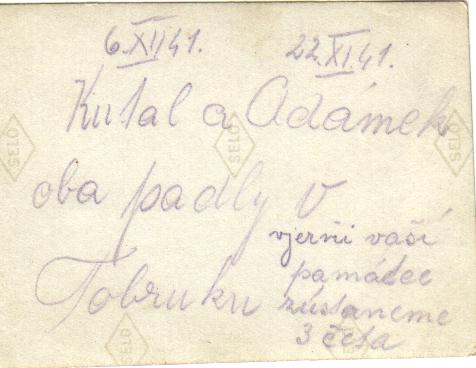 6.XII41. 22.XI.41.
Kutal a Adámek
oba padly v
Tobruku
vjerňi vaší
památce
zústaneme
3 četa
SELO
SELO
SELO
SELO
SELO